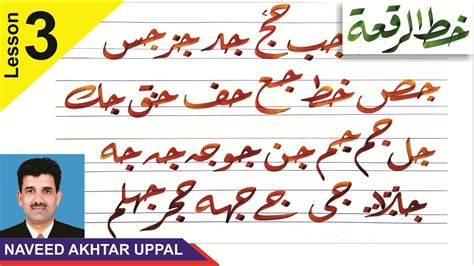 Lesson 3
خط الرقعة
جب حج جد جز جس
جص خط جع حف حق جك
جل جم جم جن جو جه جه جه
جی جے جهه حجر جهلم
NAVEED AKHTAR UPPAL